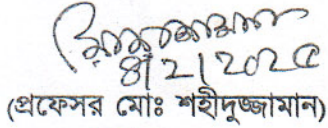 8/2/2024
(প্রফেসর মোঃ শহীদুজ্জামান)